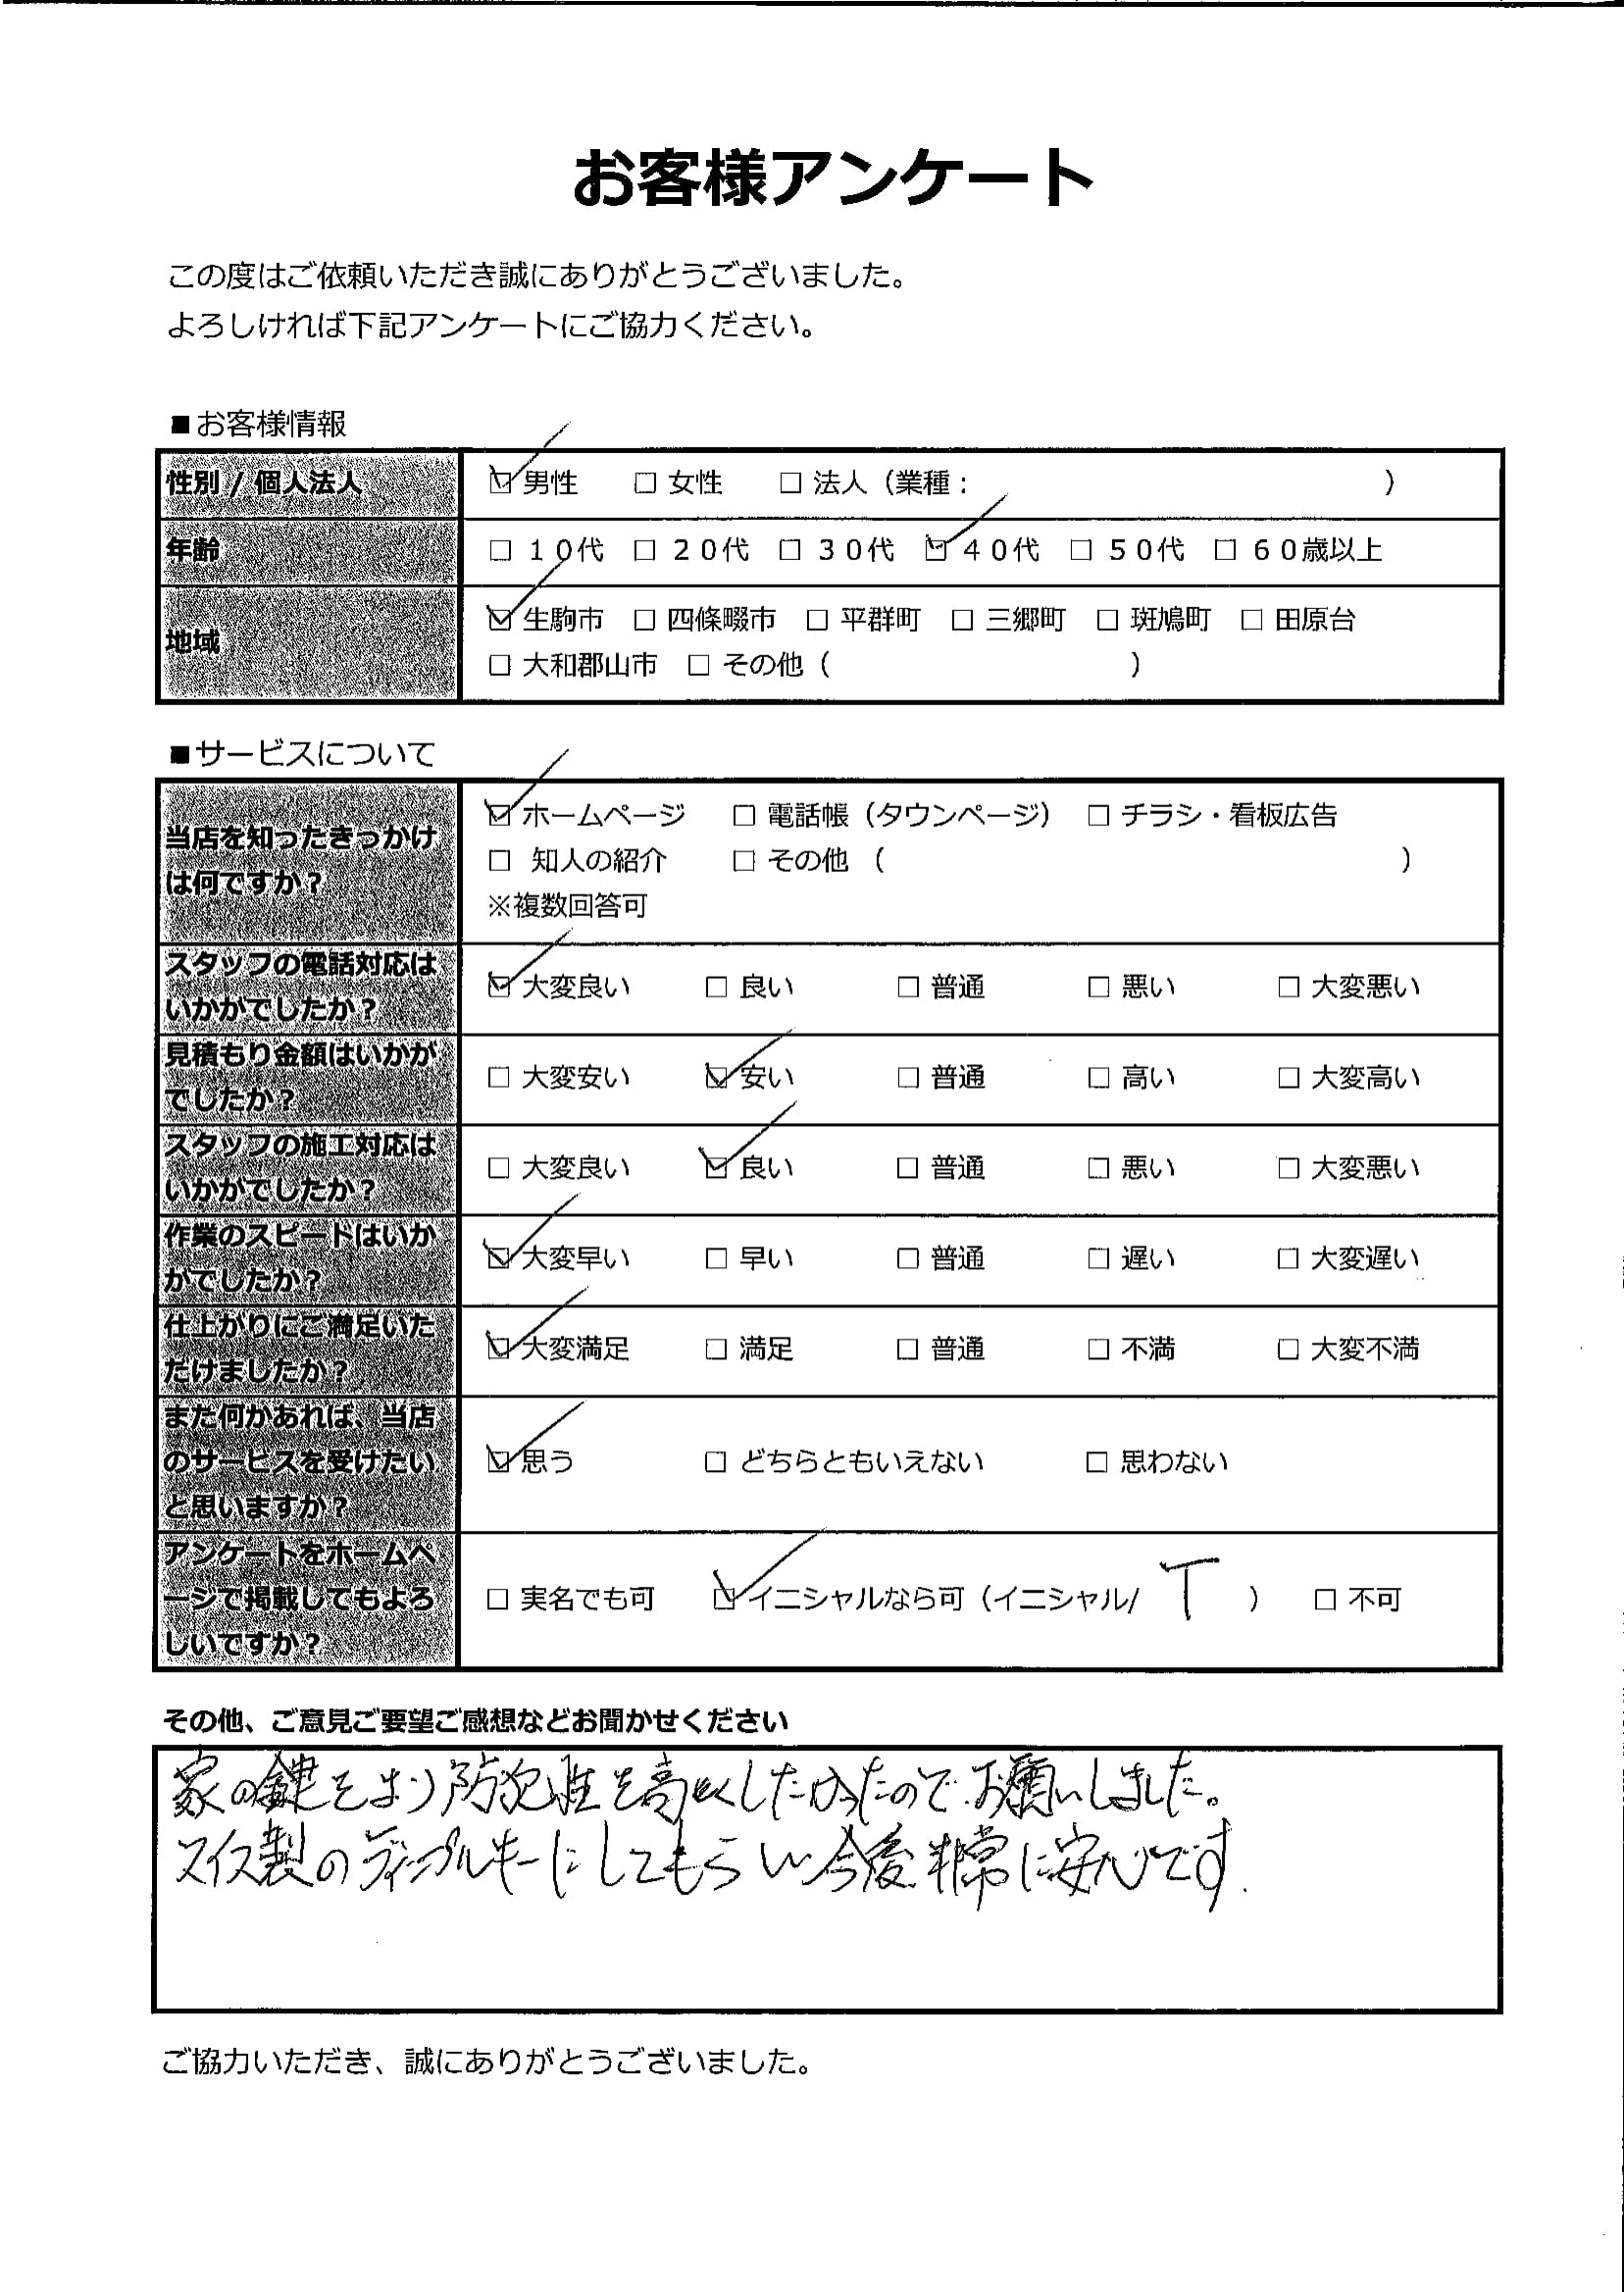 お客様アンケート
この度はご依頼いただき誠にありがとうございました。
よろしければ下記アンケートにご協力ください。
■お客様情報
性別 / 個人法人 ☑男性 □ 女性 □ 法人（業種： ）
年齢 □ 10代 □ 20代 □ 30代 ☑ 40代 □ 50代 □ 60歳以上
地域 ☑ 生駒市 □ 四條畷市 □ 平群町 □ 三郷町 □ 斑鳩町 □ 田原台
□ 大和郡山市 □ その他（ ）
■サービスについて
当店を知ったきっかけ
は何ですか？
☑ ホームページ □ 電話帳（タウンページ） □ チラシ・看板広告
□ 知人の紹介 □ その他 （ ）
※複数回答可
スタッフの電話対応は
いかがでしたか？
☑ 大変良い □ 良い □ 普通 □ 悪い □ 大変悪い
見積もり金額はいかが
でしたか？
□ 大変安い ☑ 安い □ 普通 □ 高い □ 大変高い
スタッフの施工対応は
いかがでしたか？
□ 大変良い ☑ 良い □ 普通 □ 悪い □ 大変悪い
作業のスピードはいか
がでしたか？
☑ 大変早い □ 早い □ 普通 □ 遅い □ 大変遅い
仕上がりにご満足いた
だけましたか？
☑ 大変満足 □ 満足 □ 普通 □ 不満 □ 大変不満
また何かあれば、当店
のサービスを受けたい
と思いますか？
☑ 思う □ どちらともいえない □ 思わない
アンケートをホームペ
ージで掲載してもよろ
しいですか？
□ 実名でも可 ☑ イニシャルなら可（イニシャル/ T ） □ 不可
その他、ご意見ご要望ご感想などお聞かせください
家の鍵をより防犯性を高くしたかったのでお願いしました。
スイス製のディンプルキーにしてもらい今後非常に安心です.
ご協力いただき、誠にありがとうございました。